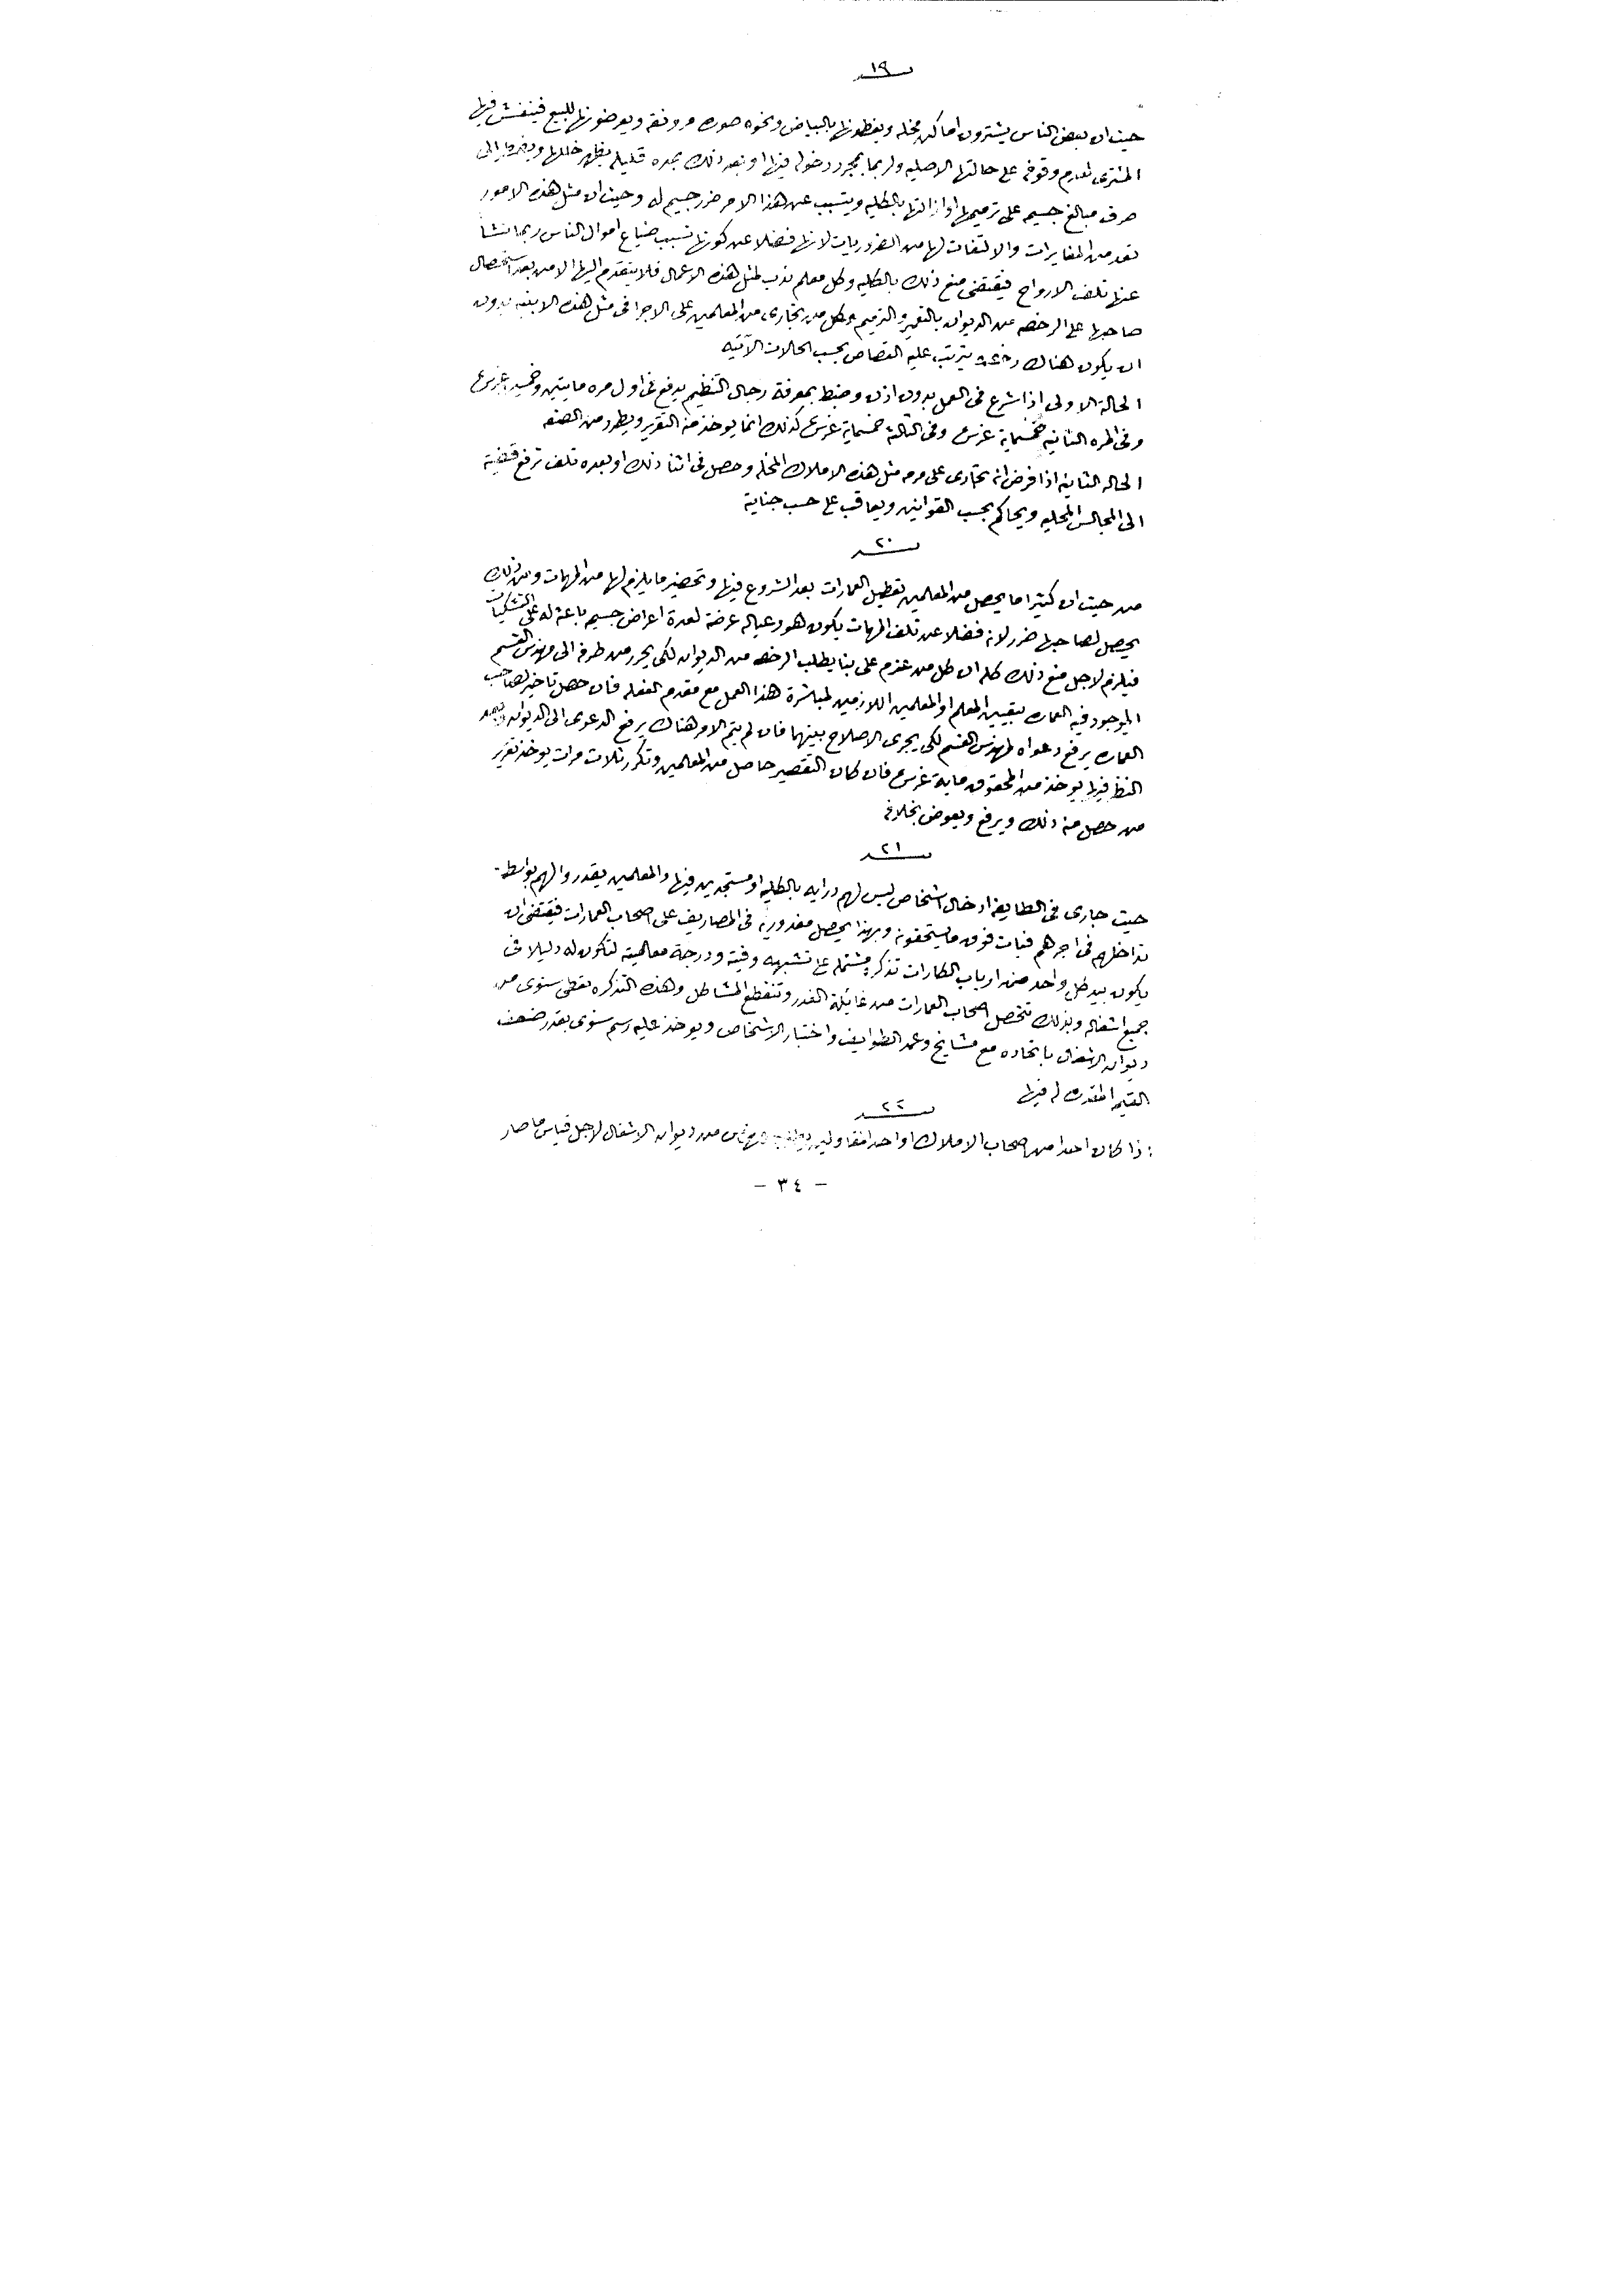 ١٩
حيث ان بعض الناس يشترون اماكن مخله ويغطونها بالبياض ونحوه صوره ورونقه ويعرضونها للبيع فينغش فيها
المشترى لعدم وقوفه على حالتها الاصليه ولربما بمجرد دخوله فيها او بعد ذلك بمده قليله يظهر خللها ويضطر الى
صرف مبالغ جسيمه على ترميمها او ازالتها بالكليه ويتسبب عن هذا الامر ضرر جسيم له وحيث ان مثل هذه الامور
تعد من المغايرات والالتفات لها من الضروريات لانها فضلا عن كونها تسبب ضياع اموال الناس ربما تنشأ
عنها تلف الارواح فيقتضى منع ذلك بالكليه وكل معلم ندب لمثل هذه الاعمال فلا يتقدم اليها الا من بعد استحصال
صاحبها على الرخصه من الديوان بالتعمير والترميم وكل من تجارى من المعلمين على الاجرا فى مثل هذه الابنيه بدون
ان يكون هناك رخصه يترتب عليه القصاص بحسب الحالات الآتيه
الحالة الاولى اذا شرع فى العمل بدون اذن وضبط بمعرفة رجال التنظيم يدفع فى اول مره مايتين وخمسين غرش
وفى المره الثانيه خمسماية غرش وفى الثالثة خمسماية غرش كذلك انما يوخذ منه التقرير ويطرد من الصنعه
الحاله الثانيه اذا فرض انه تجارى على مرمه مثل هذه الاملاك المخله وحصل فى اثنا ذلك او بعده تلف ترفع قضيته
الى المجالس المحليه ويحاكم بحسب القوانين ويعاقب على حسب جنايته
٢٠
من حيث ان كثيرا ما يحصل من المعلمين تعطيل العمارات بعد الشروع فيها وتحضير ما يلزم لها من المهمات ومن ذلك
يحصل لصاحبها ضرر لانه فضلا عن تلف المهمات يكون هو وعياله عرضة لعدة اعراض جسيم باعثه له على التشكيات
فيلزم لاجل منع ذلك كله ان كل من عزم على بنا يطلب الرخصه من الديوان لكى يحرر من طرفه الى مهندس القسم
الموجود فيه العماره بتعيين المعلم او المعلمين اللازمين لمباشرة هذا العمل مع مقدم الفعله فان حصل تاخير لصاحب
العماره يرفع دعواه لمهندس القسم لكى يجرى الاصلاح بينهما فان لم يتم الامر هناك يرفع الدعوى الى الديوان وبعد
النظر فيها يوخذ من المحقوق ماية غرش فان كان التقصير حاصل من المعلمين وتكرر ثلاث مرات يوخذ تقرير
من حصل منه ذلك ويرفع ويعوض بخلافه
٢١
حيث جارى فى الطايفه ادخال اشخاص ليس لهم درايه بالكليه او مستجدين فيها والمعلمين يقدروا لهم بواسطة
تداخلهم فى اجرهم فيات فوق ما يستحقونه وبهذا يحصل مغدورية فى المصاريف على اصحاب العمارات فيقتضى ان
يكون بيد كل واحد من ارباب الكارات تذكره مشتمله على تشبيهه وفيته ودرجة معالميته لتكون له دليلا فى
جميع اشغاله وبذلك تخلص اصحاب العمارات من غايلة الغدر وتنقطع المشاكل وهذه التذكره تعطى سنوى من
ديوان الاشغال باتحاده مع مشايخ وعمد الطوايف واختبار الاشخاص ويوخذ عليه رسم سنوى بقدر ضعف
القيم المقدره له فيها
٢٢
اذا كان احدا من اصحاب الاملاك او احد المقاولين يطلب مهندس من ديوان الاشغال لاجل قياس ما صار
- ٣٤ -